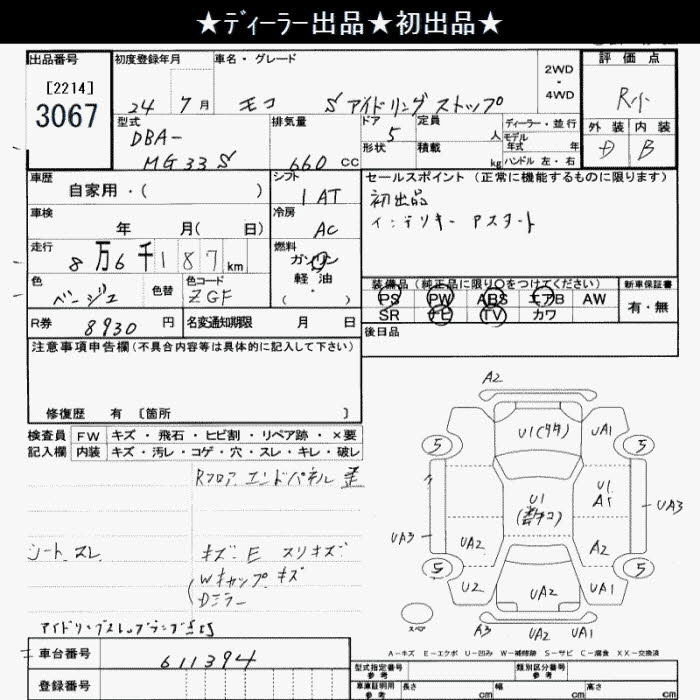 ★ディーラー出品★初出品★
出品番号
[2214]
3067
初度登録年月
24 7月
車名・グレード
モコ S アイドリングストップ
2WD
・
4WD
評価点
R小
外装 内装
D B
型式
DBA-
MG33S
排気量
660 CC
ドア
5
形状
定員
人
積載
kg
ディーラー・並行
モデル
年式 年
ハンドル 左・右
車歴
自家用・( )
シフト
1AT
セールスポイント (正常に機能するものに限ります)
初出品
インテリキー Pスタート
車検
年 月( 日)
冷房
AC
走行
8万6千187km
燃料
ガソリン
軽油
( )
色
ベージュ
色替
色コード
ZGF
装備品(純正品に限り○をつけてください)
PS PW ABS エアB AW
SR TV カワ
新車保証書
有・無
R券
8930円
名変通知期限 月 日
後日品
注意事項申告欄(不具合内容等は具体的に記入して下さい)
修復歴 有 〔箇所 〕
検査員
記入欄
FW キズ・飛石・ヒビ割・リペア跡・×要
内装 キズ・汚レ・コゲ・穴・スレ・キレ・破レ
Rフロア エンドパネル 歪
シート スレ
キズ・E スリキズ
Wキャップ キズ
Dミラー
アイドリングストップランプ点灯
車台番号
611394
登録番号
A2
U1(タタ) UA1
5 5
U1
U1
A1
UA3
UA3
UA2
A2
5 5
U2
UA2
UA1
スペア
A3 UA2 UA1
A-キズ E-エクボ U-凹み W-補修跡 S-サビ C-腐食 XX-交換済
型式指定番号
参考
類別区分番号
参考
車庫証明用
参考
長さ cm 幅 cm 高さ cm